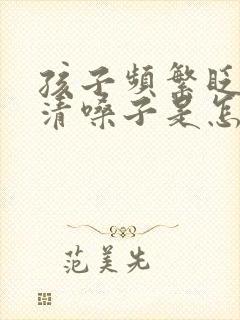 孩子頻繁眨
清嗓子是怎
范美先